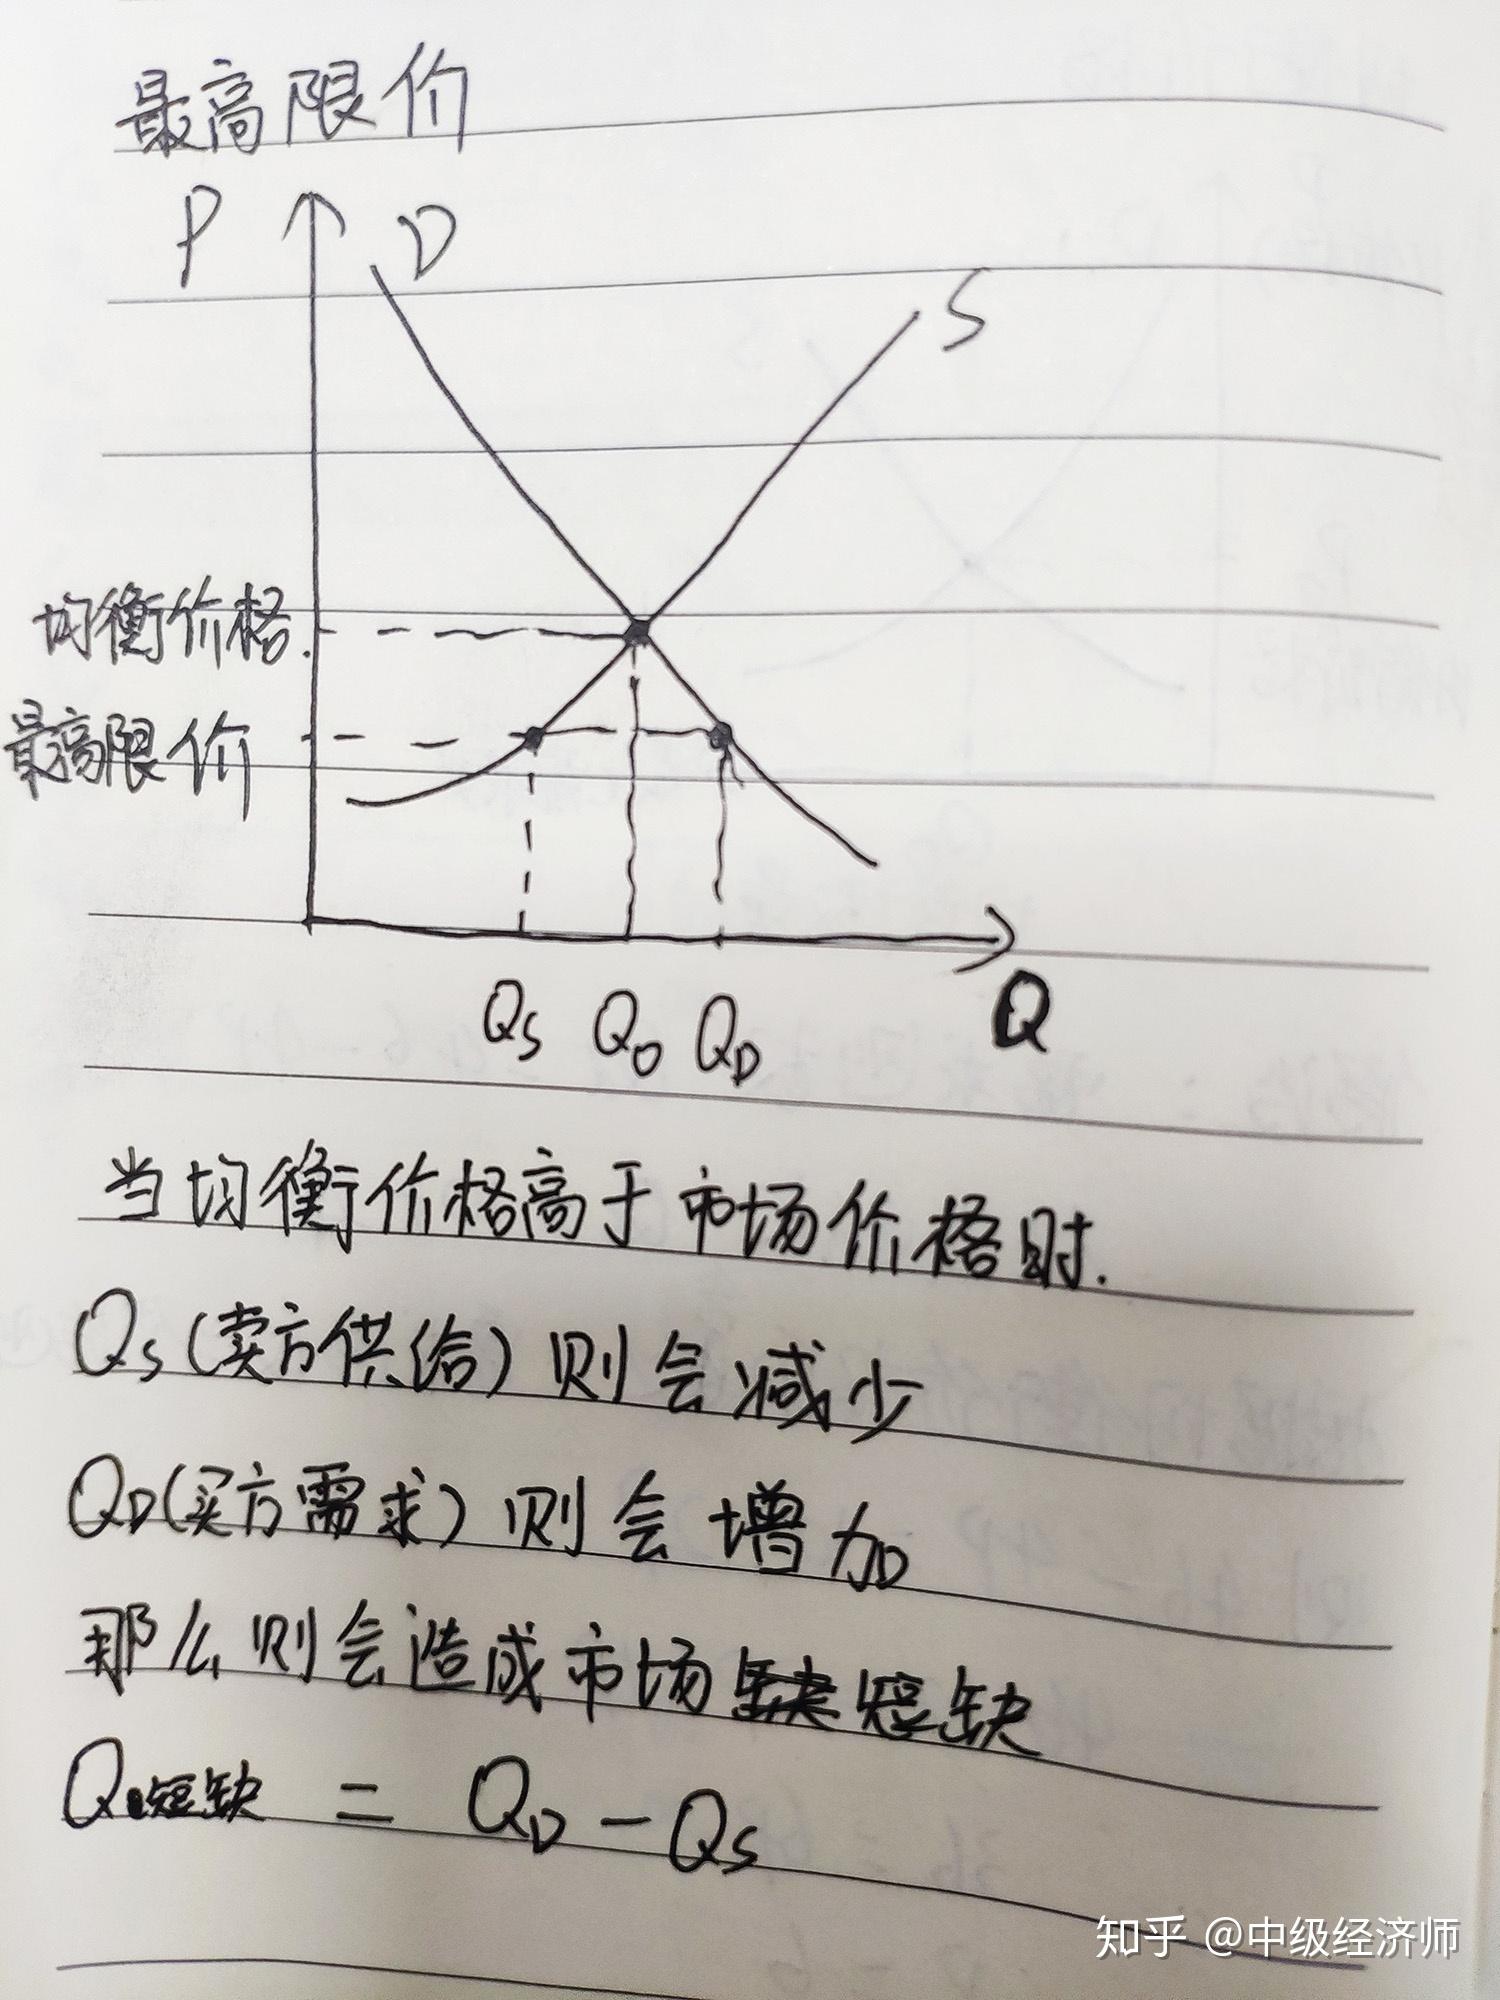 最高限价
P
D
S
均衡价格.
最高限价
Qs Q0 QD
Q
当均衡价格高于市场价格时.
Qs(卖方供给)则会减少
QD(买方需求)则会增加
那么则会造成市场短缺
Q短缺 = QD - Qs
知乎 @中级经济师